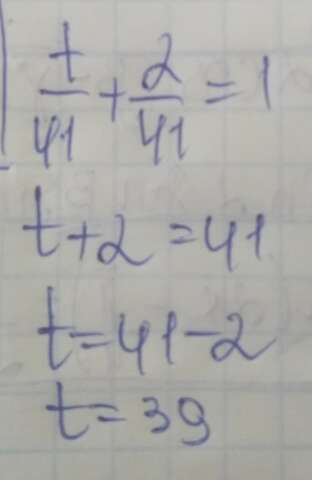 t/41 + 2/41 = 1
t+2 = 41
t = 41-2
t = 39